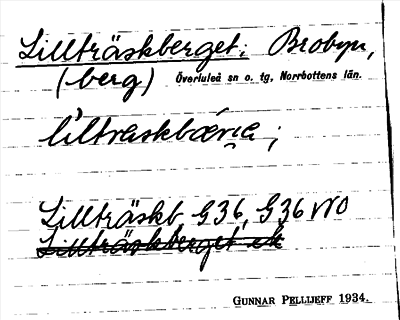 Lillträskberget; Brobyn,
(berg) Överluleå sn o. tg, Norrbottens län.
Lillträskb G36, G36 NO
Lillträskberget ek
GUNNAR PELLIJEFF 1934.